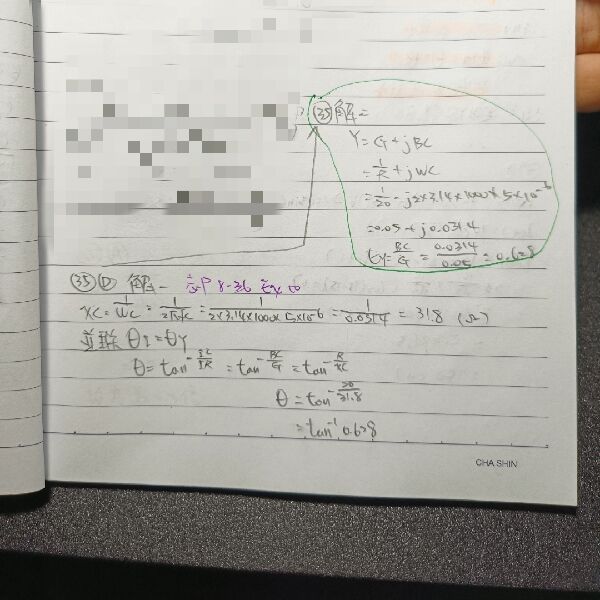 ㉟解=
Y=G+jBC
=1/R+jWC
=1/20-j2×3.14×1000×5×10⁻⁶
=0.05+j0.0314
θY=BC/G=0.0314/0.05=0.628
㉟D 解-
P8-36
XC=1/WC=1/2πfC=1/2×3.14×1000×5×10-6=1/0.0314=31.8 (Ω)
並联θI=θY
θ=tan⁻IC/IR=tan⁻BC/G=tan⁻R/XC
θ=tan⁻20/31.8
=tan⁻¹0.628
CHA SHIN